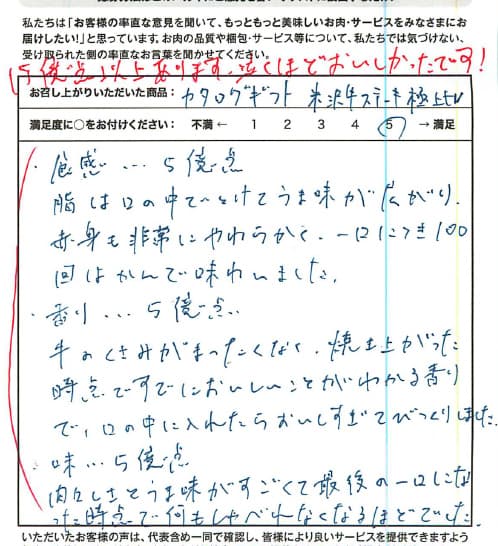 私たちは「お客様の率直な意見を聞いて、もっともっと美味しいお肉・サービスをみなさまにお
届けしたい!」と思っています。お肉の品質や梱包・サービス等について、私たちでは気づけない、
受け取られた側の率直なお言葉を聞かせてください。
15億点以上あります。泣くほどおいしかったです!
お召し上がりいただいた商品: カタログギフト 米沢牛ステーキ極上ヒレ
満足度に○をお付けください: 不満 ← 1 2 3 4 5 → 満足
・食感…5億点
脂は口の中でとけてうま味が広がり、
赤身も非常にやわらかく、一口につき100
回はかんで味わいました。
・香り…5億点
牛のくさみがまったくなく、焼き上がった
時点ですでにおいしいことがわかる香り
で、口の中に入れたらおいしすぎてびっくりしました。
・味…5億点
肉々しさとうま味がすごくて最後の一口にな
った時点で何もしゃべれなくなるほどでした。
いただいたお客様の声は、代表含め一同で確認し、皆様により良いサービスを提供できますよう